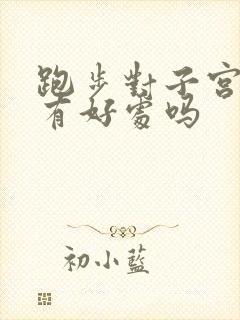 跑步對子宮
有好處嗎
初小藍